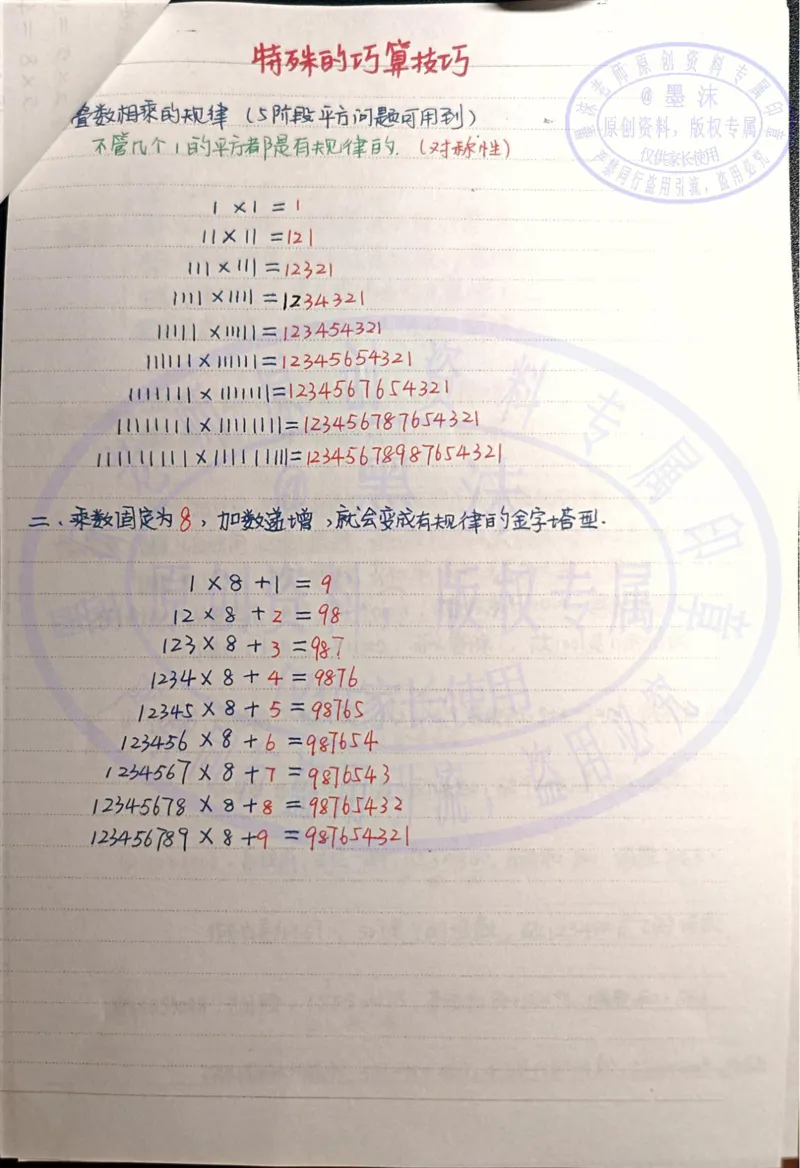 特殊的巧算技巧
叠数相乘的规律（5阶段平方问题可用到）
不管几个1的平方都是有规律的.（对称性）
1×1=1
11×11=121
111×111=12321
1111×1111=1234321
11111×11111=123454321
111111×111111=12345654321
1111111×1111111=1234567654321
11111111×11111111=123456787654321
111111111×111111111=12345678987654321
二、乘数固定为8，加数递增，就会变成有规律的金字塔型.
1×8+1=9
12×8+2=98
123×8+3=987
1234×8+4=9876
12345×8+5=98765
123456×8+6=987654
1234567×8+7=9876543
12345678×8+8=98765432
123456789×8+9=987654321
墨沫老师原创资料专属印章
@墨沫
原创资料，版权专属
仅供家长使用
严禁同行盗用引流，盗用必究